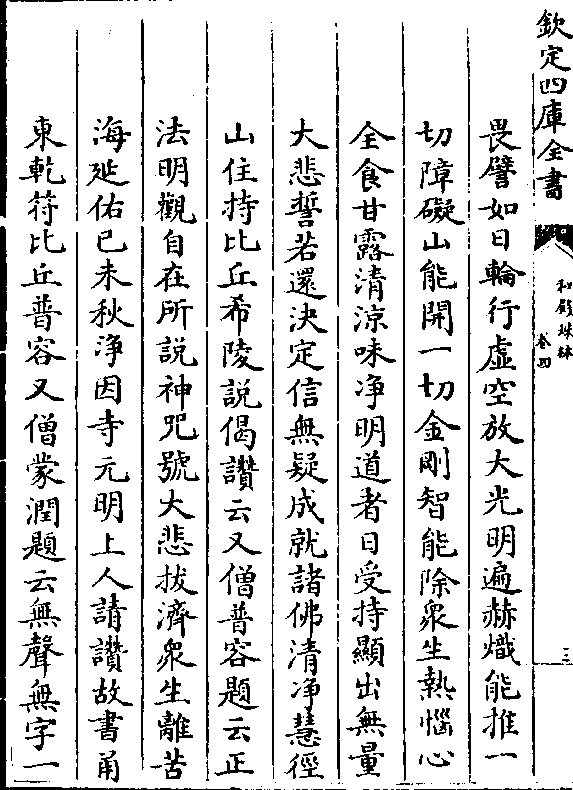 欽定四庫全書
秘殿珠林
卷四
三
畏譬如日輪行虛空放大光明遍赫熾能推一
切障礙山能開一切金剛智能除衆生熱惱心
全食甘露清涼味净明道者日受持顯出無量
大悲誓若還決定信無疑成就諸佛清净慧徑
山住持比丘希陵説偈讚云又僧普容題云正
法明觀自在所説神咒號大悲拔濟衆生離苦
海延佑已未秋淨因寺元明上人請讚故書甬
東乾符比丘普容又僧蒙潤題云無聲無字一